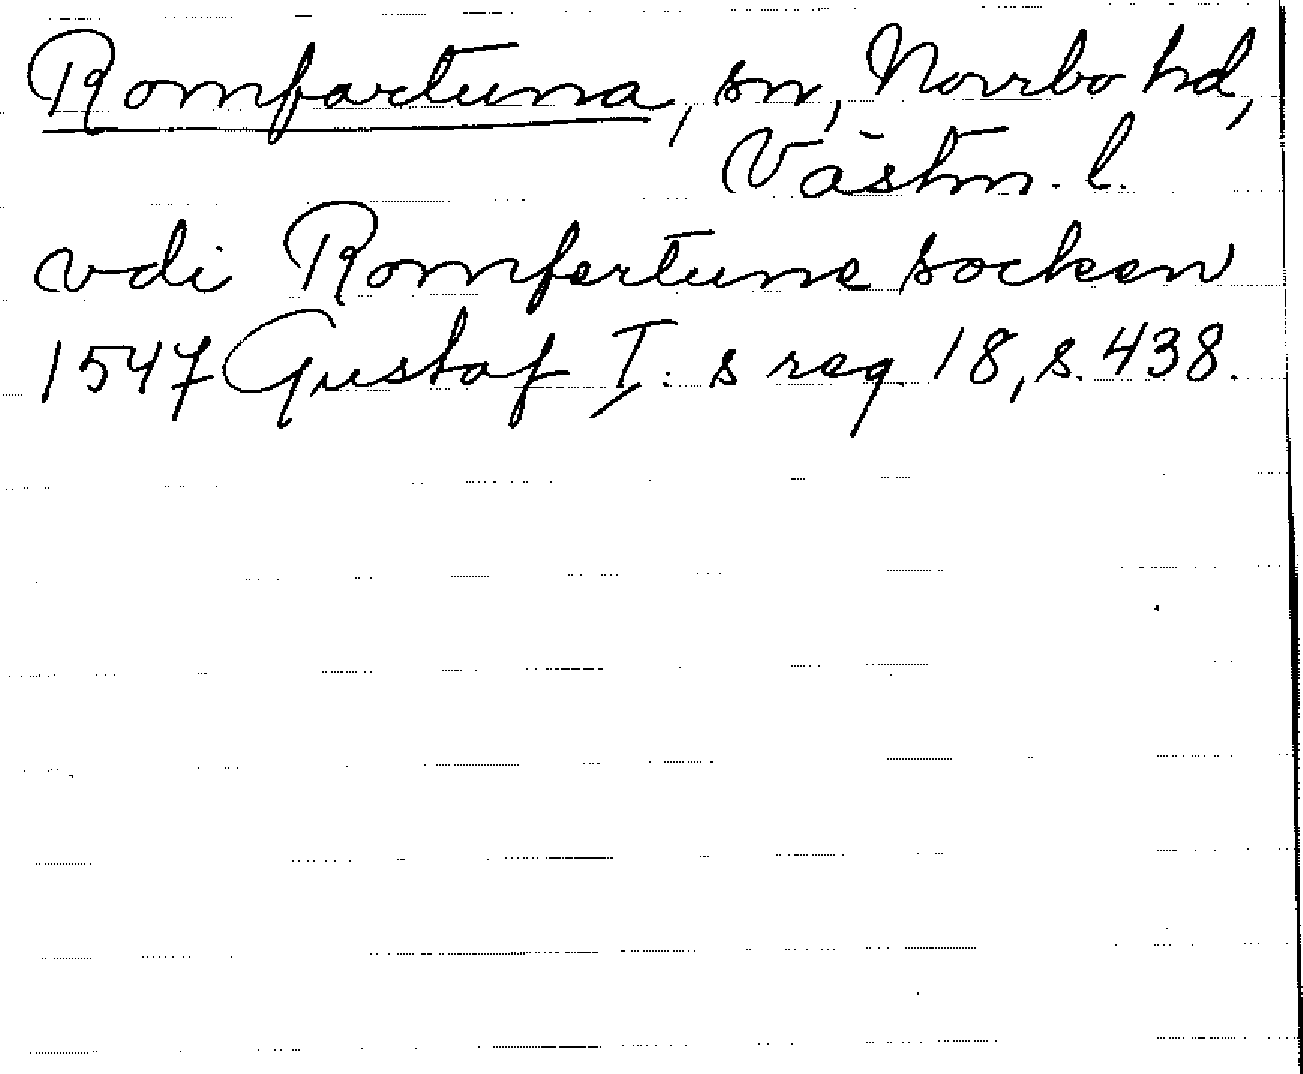 Romfartuna, sn, Norrbo hd,
Västm. l.
vdi Romfertune socken
1547 Gustaf I:s reg 18, s. 438.